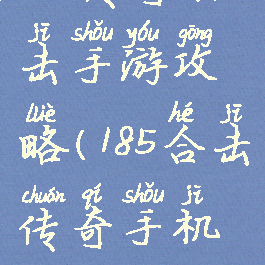 jī shǒu yóu gōng
击手游攻
lüè hé jī
略(185合击
chuán qí shǒu jī
传奇手机